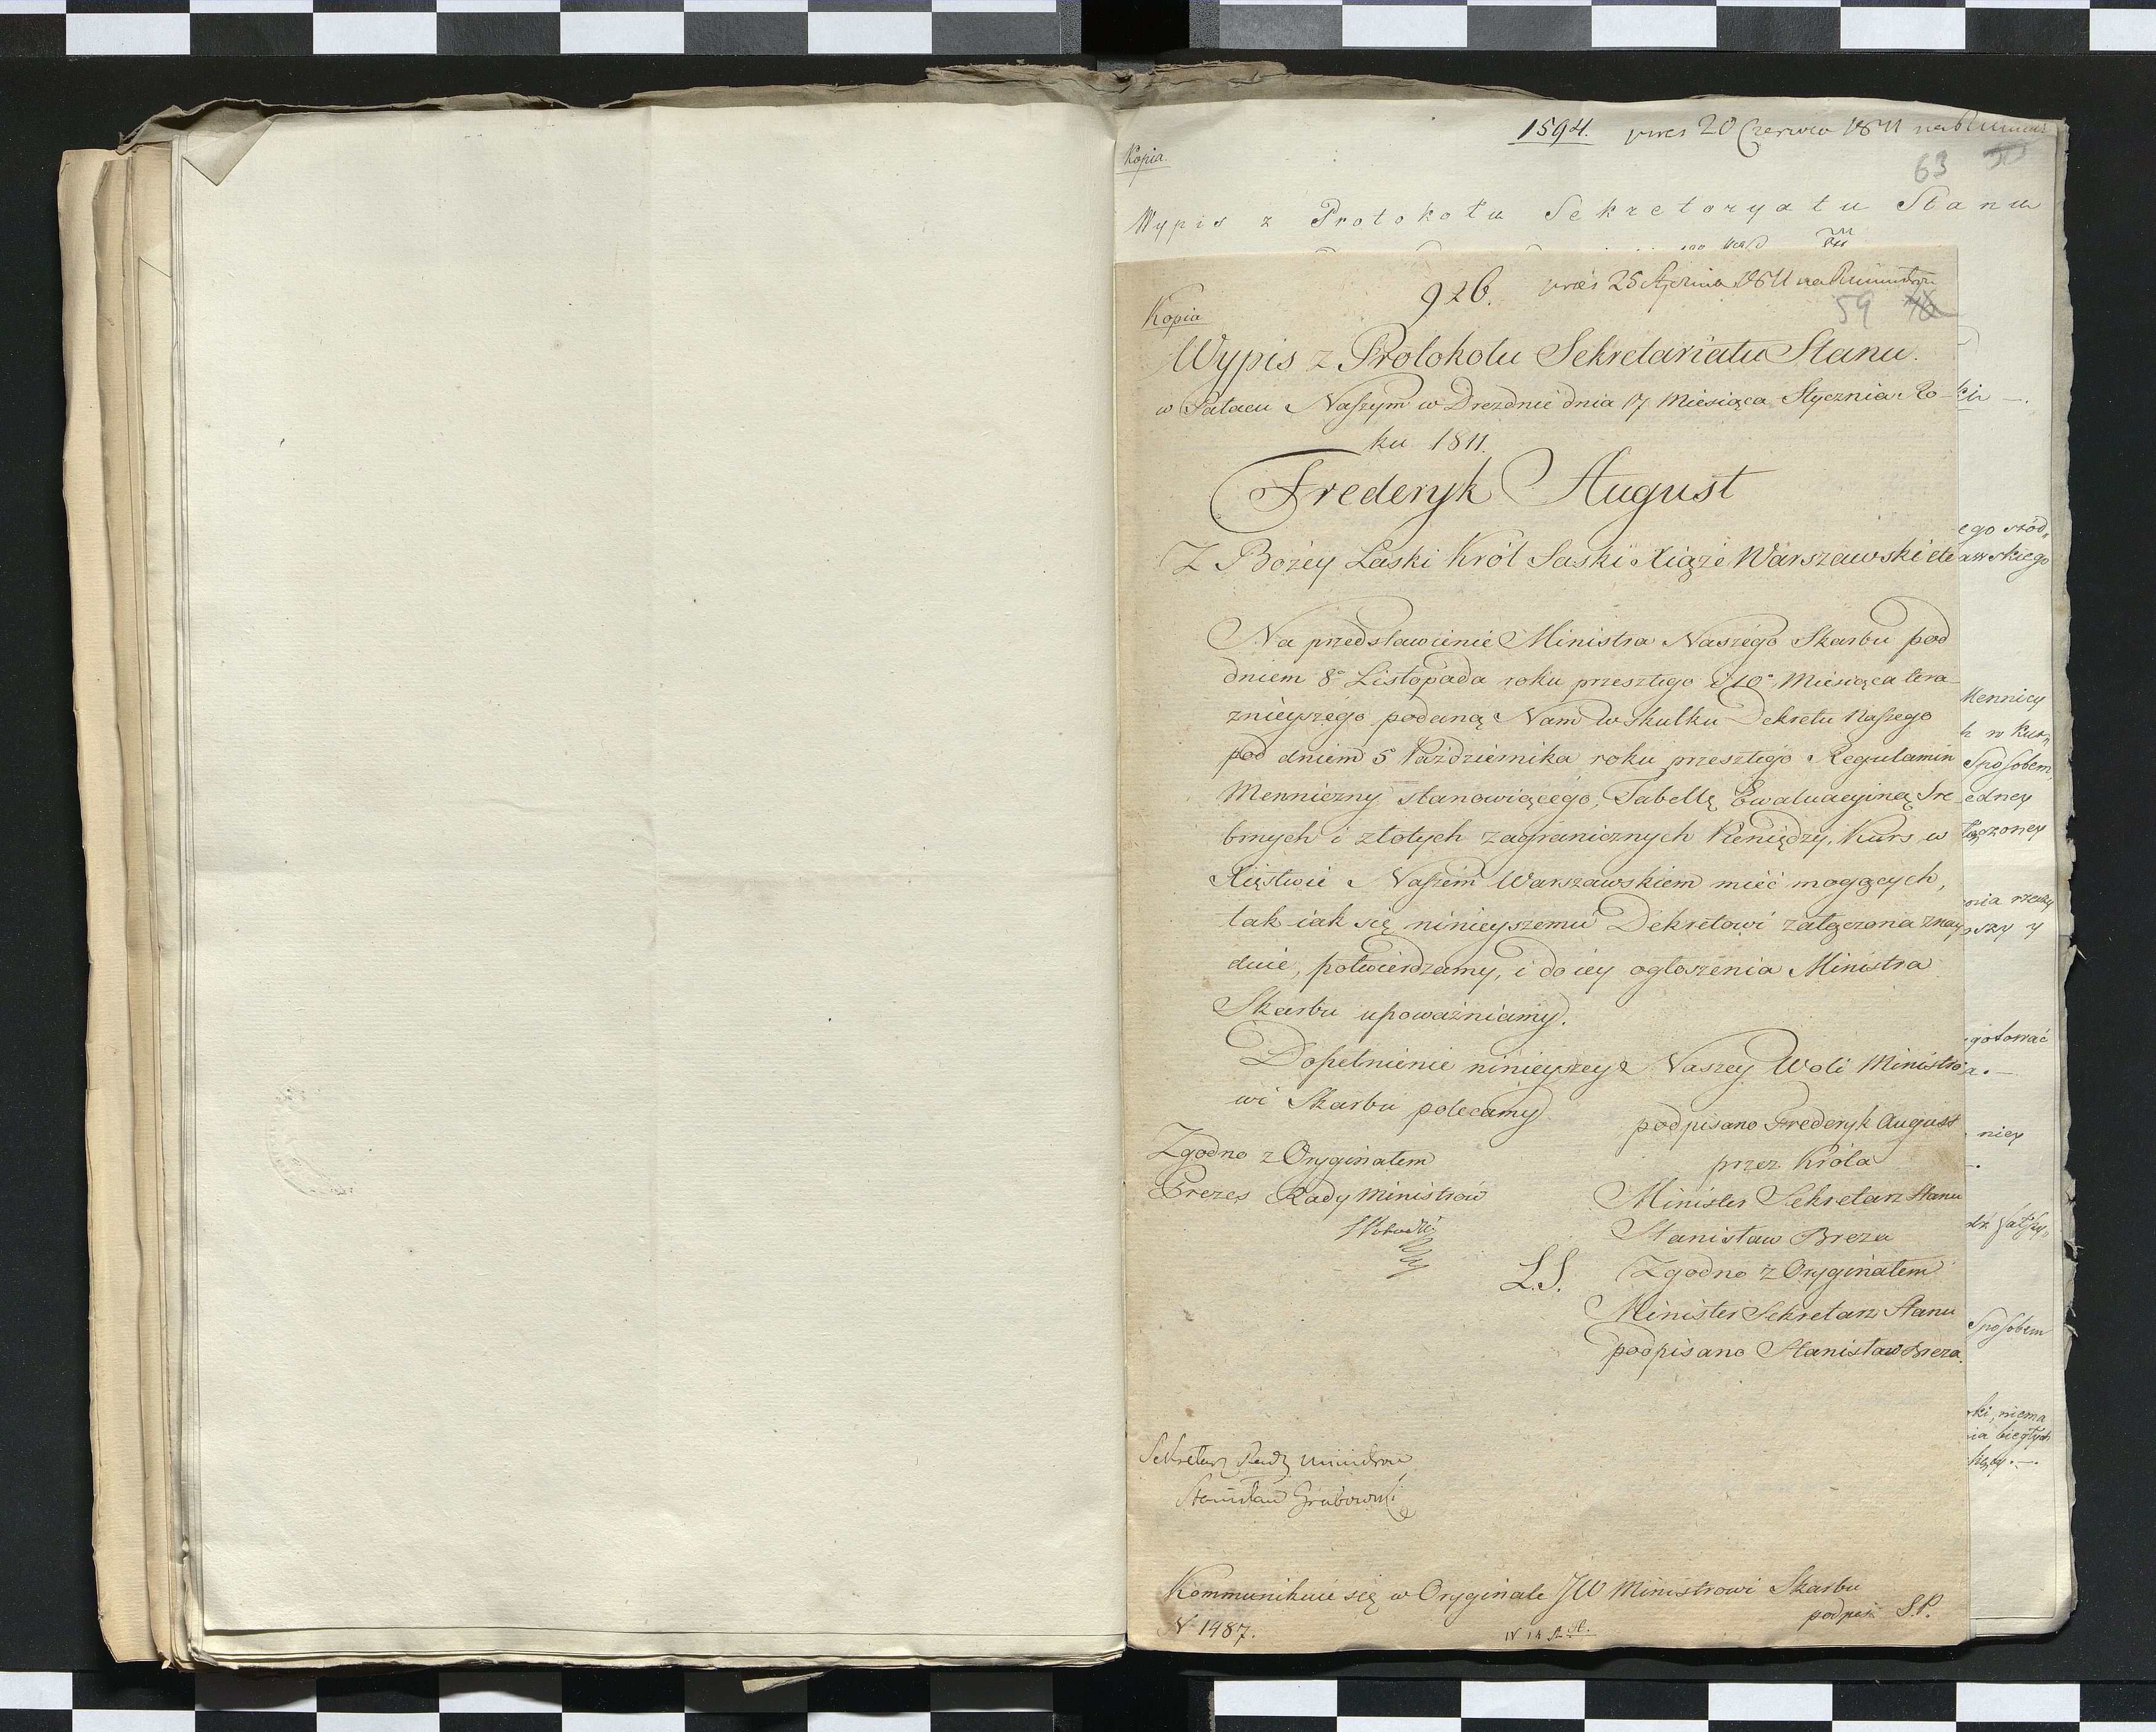 1594. 20 Czerwca 1811
Kopia.
63
Wypis z Protokołu Sekretaryatu Stanu
926. 25 Stycznia 1811
59
Kopia
Wypis z Protokołu Sekretariatu Stanu.
w Pałacu Naszym w Drezdnie dnia 17 Miesiąca Stycznia Ro-
ku 1811.
Frederyk August
Z Bożey Łaski Król Saski Xiąże Warszawski etc
Na przedstawienie Ministra Naszego Skarbu pod
dniem 8° Listopada roku przeszłego i 10° Miesiąca tera-
znieyszego podaną Nam w skutku Dekretu Naszego
pod dniem 5 Października roku przeszłego Regulamin
Menniczny stanowiącego, Tabellę Ewaluacyiną Sre-
brnych i złotych zagranicznych Pieniędzy, Kurs w
Xięstwie Naszem Warszawskiem mieć mogących,
tak iak się ninieyszemu Dekretowi załączona znay
duie, potwierdzamy, i do iey ogłoszenia Ministra
Skarbu upoważniamy.
Dopełnienie ninieyszey Naszey Woli Ministro
wi Skarbu polecamy.
podpisano Frederyk August
przez Króla
Minister Sekretarz Stanu
Stanisław Breza
Zgodno z Oryginałem
Prezes Rady Ministrów
L.S. Zgodno z Oryginałem
Minister Sekretarz Stanu
podpisano Stanisław Breza.
Sekretarz Rady Ministrow
Stanisław Grabowski
Kommunikuie się w Oryginale JW Ministrowi Skarbu
podpis. S.P.
N 1487.
ego
awskiego
Mennicy
Sposobem,
edney
łączoney
gotować
niey
Sposobem
niema
biegłych